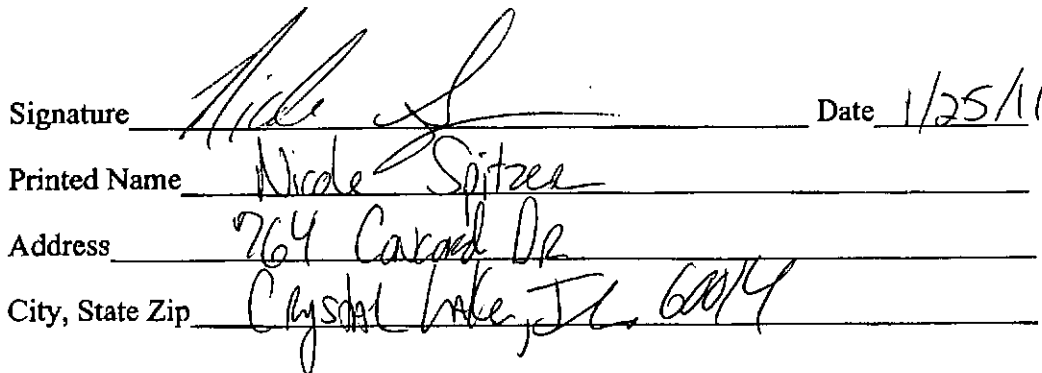 Signature Nicole S Date 1/25/11
Printed Name Nicole Spitzer
Address 764 Concord DR
City, State Zip Crystal Lake, IL. 60014